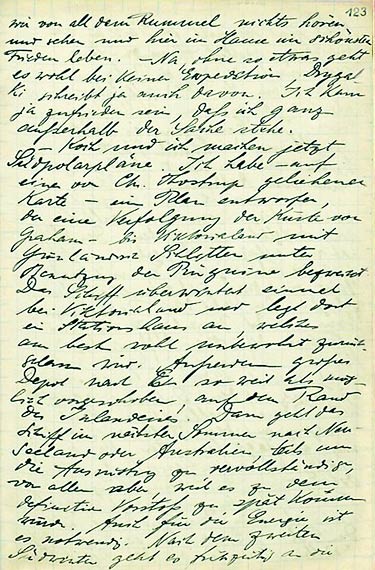 123
wir von all dem Rummel nichts hören
und sehen und hier im Hause im schönsten
Frieden leben. – Na, ohne so etwas geht
es wohl bei keiner Expedition. Drygal
ki schreibt ja auch davon. Ich kann
ja zufrieden sein, daß ich ganz
außerhalb der Sache stehe.
– Koch und ich machen jetzt
Südpolarpläne. Ich habe – auf
eine von Ch. Thostrup geliehenen
Karte – ein Plan entworfen,
da eine Verfolgung der Küste von
Graham – bis Viktorialand mit
Grönländ Schlitten unter
Benutzung der Pinguine bezweckt
Das Schiff überwintert einmal
bei Viktorialand und legt dort
ein Stationshaus an, welches
am best voll
gelassen wird. Außerdem großes
Depot nach E. so weit als mög-
lich vorgeschoben, auf dem Rand
des Inlandeises. Dann geht das
Schiff im nächsten Sommer nach Neu
Seeland oder Australien, teils um
die Ausrüstung zu vervollständigen,
vor allem aber weil es zu dem
definitiven Vorstoß zu spät kommen
würde. Auch für die Energie ist
es notwendig. Nach dem zweiten
Südwinter geht es frühzeitig an die